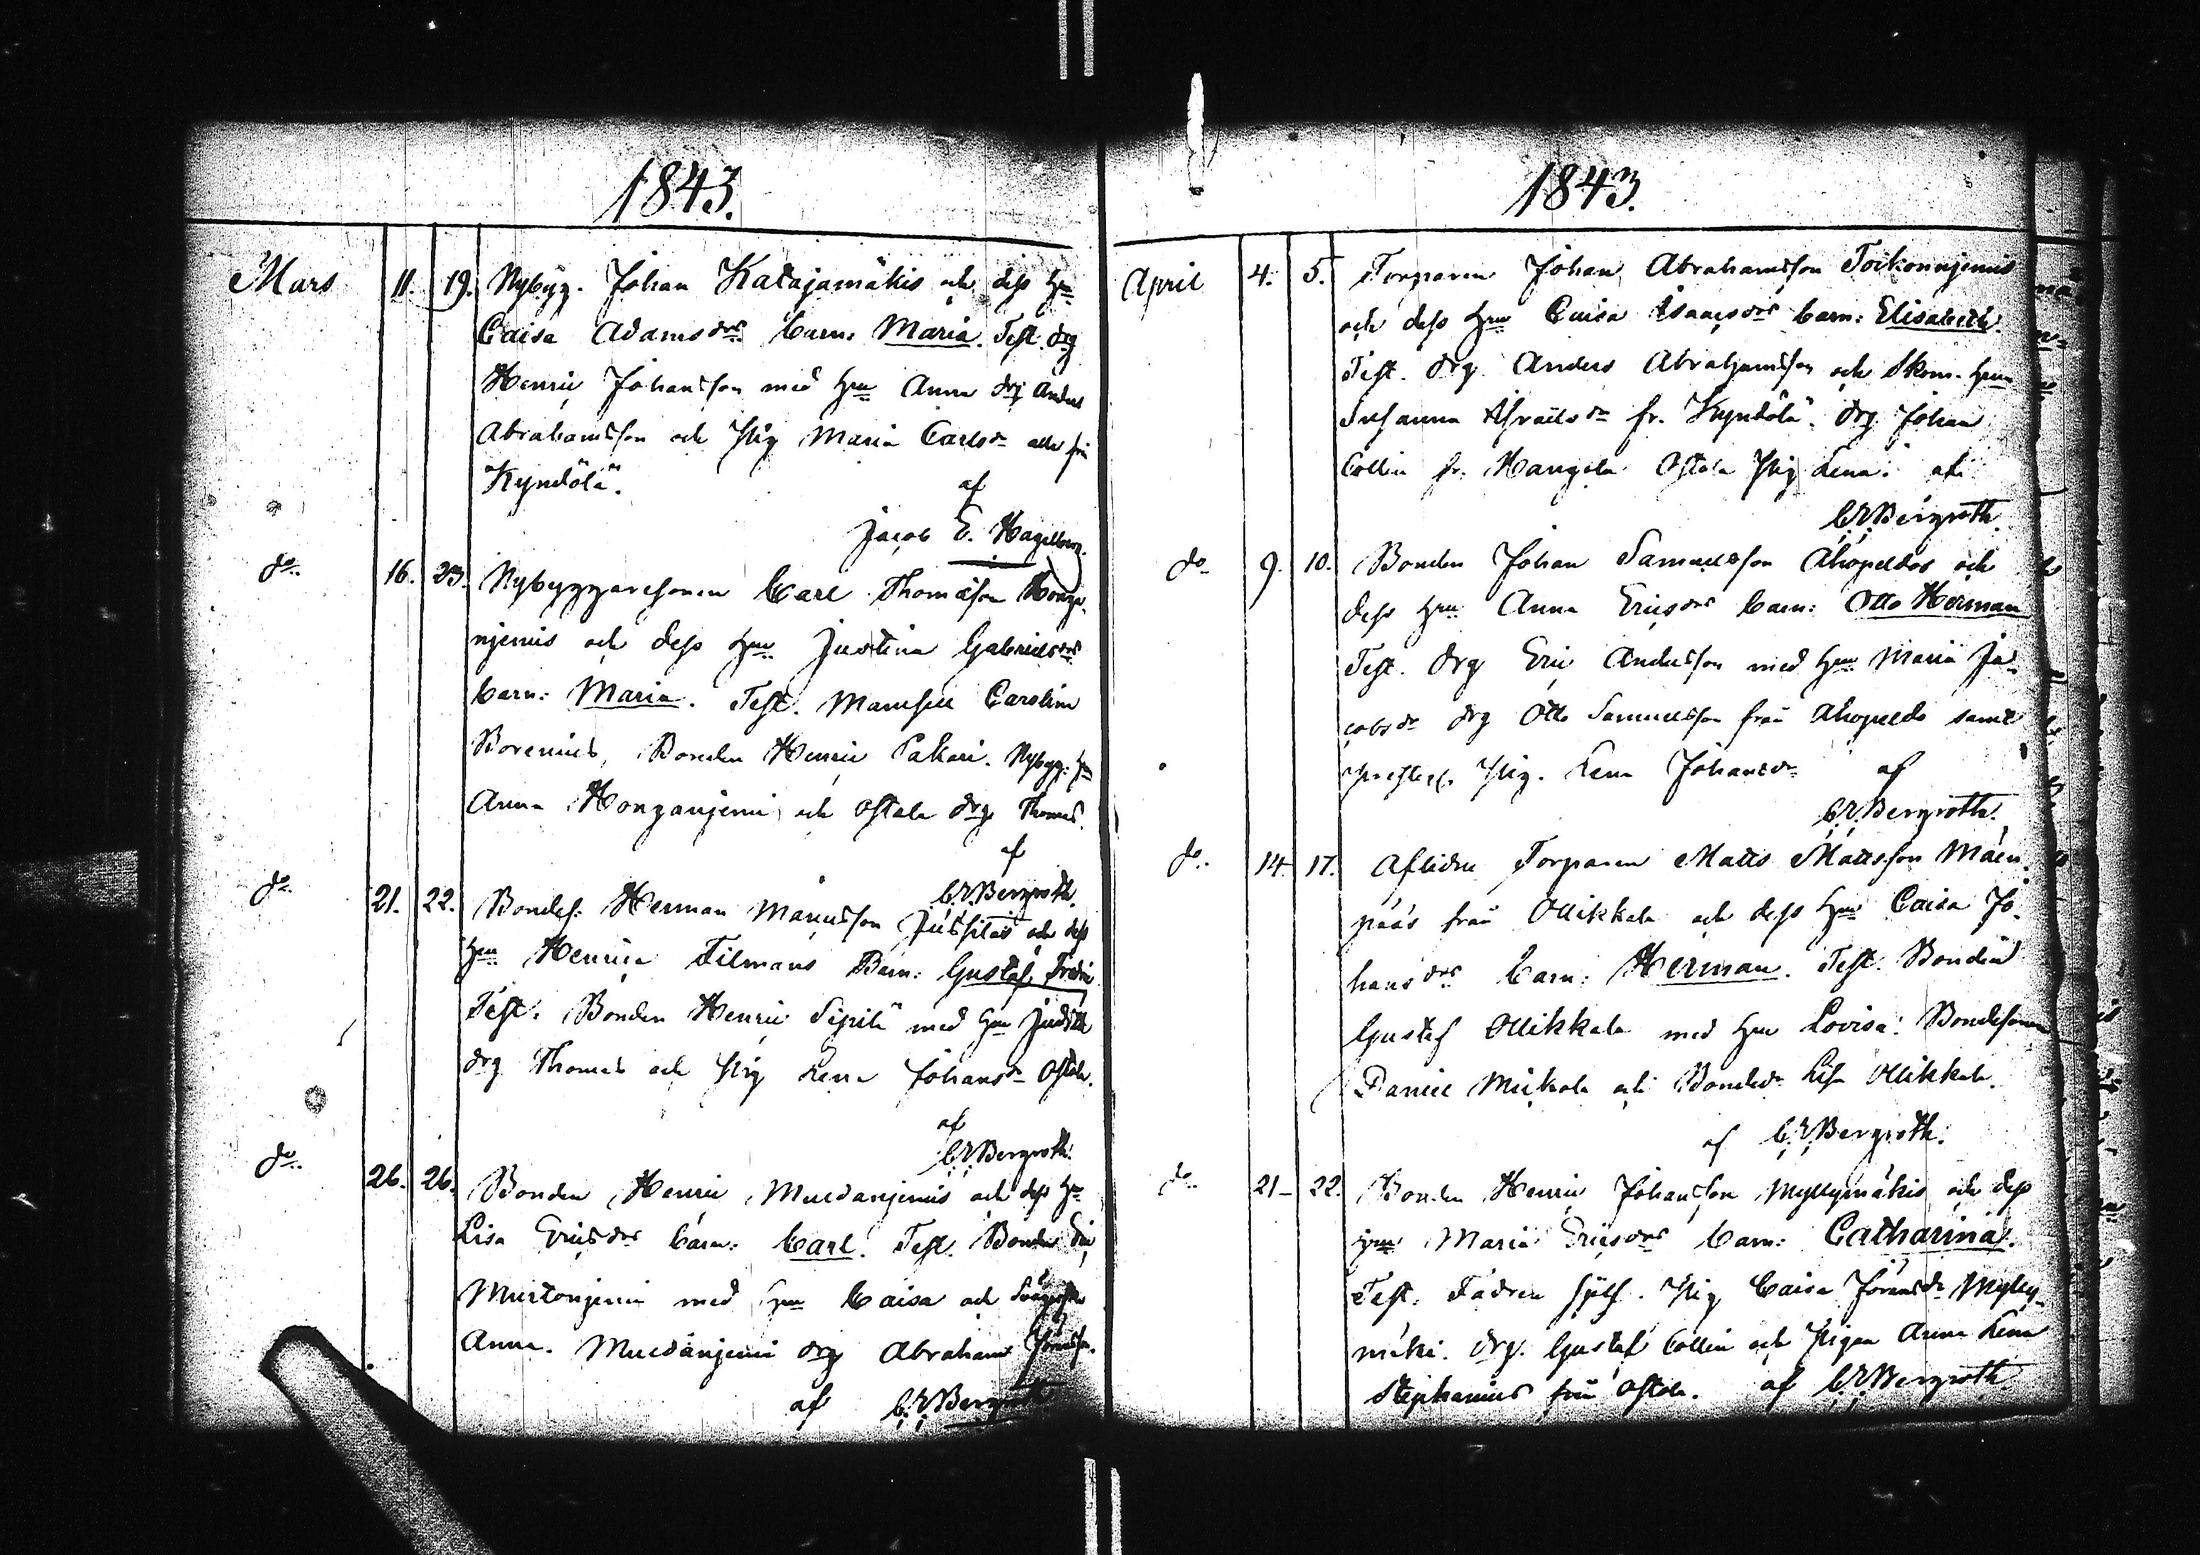 1843.
Mars 11. 19. Nybyg. Johan Katajamäkis och dess hu
Caisa Adamsdrs barn: Maria. Test. drg
Henric Johansson med hu Anna drg Anders
Abrahamsson och Pig Maria Carlsdr alla frn
Kyndölä.
af
Jacob E. Hagelberg.
do 16. 23. Nybyggaresonen Carl Thomasson Honga-
njemis och dess hu Justina Gabrielsdrs
barn: Maria. Test. Mamsell Carolina
Borenius, Bonden Henric Pakari. Nybygg. hu
Anna Honganjemi och Ostola drg Thomas.
af
C.E. Bergroth.
do 21. 22. Bondes. Herman Månsson Jussilas och dess
hu Henrica Tilmans Barn: Gustaf Fredric
Test. Bonden Henric Sipilä med hu Judith
drg Thomas och Pig Lena Johansdr Ostola.
af
C.E. Bergroth.
do 26. 26. Bonden Henric Muldanjemis och dess hu
Lisa Ericsdrs barn: Carl. Test. Bonden Eric
Murtonjemi med hu Caisa och
Anna. Muldanjemi drg Abraham
af C.E. Bergroth
1843.
April 4. 5. Torparen Johan Abrahamsson Toikonnjemis
och dess hu Caisa Isaacsdrs barn: Elisabeth.
Test. drg Anders Abrahamsson och Skom. hu
Susanna Israelsdr fr. Kyndölä. drg Johan
Collin fr. Hangela Ostola Pig Lena. af
C.E. Bergroth.
do 9. 10. Bonden Johan Samuelsson Ahopeldos och
dess hu Anna Ericsdrs barn: Otto Herman
Test. drg Eric Andersson med hu Maria Ja-
cobsdr drg Otto Samuelsson från Ahopeldo samt
Pig. Lena Johansdr af
C.E. Bergroth.
do 14. 17. Aflidne Torparen Matts Mattsson Mäen-
pääs från Ollikkala och dess hu Caisa Jo-
hansdrs barn: Herman. Test. Bonden
Gustaf Ollikkala med hu Lovisa. Bondesonen
Daniel Mickola och Bondedr Lisa Ollikkala.
af C.E. Bergroth.
do 21 22. Bonden Henric Johansson Myllymäkis och dess
hu Maria Ericsdrs barn: Catharina.
Test. Fadren sjelf. Pig Caisa Göransdr Mylly-
mäki. drg. Gustaf Collin och Pigan Anna Lena
Stephanius från Ostola. af C.E. Bergroth